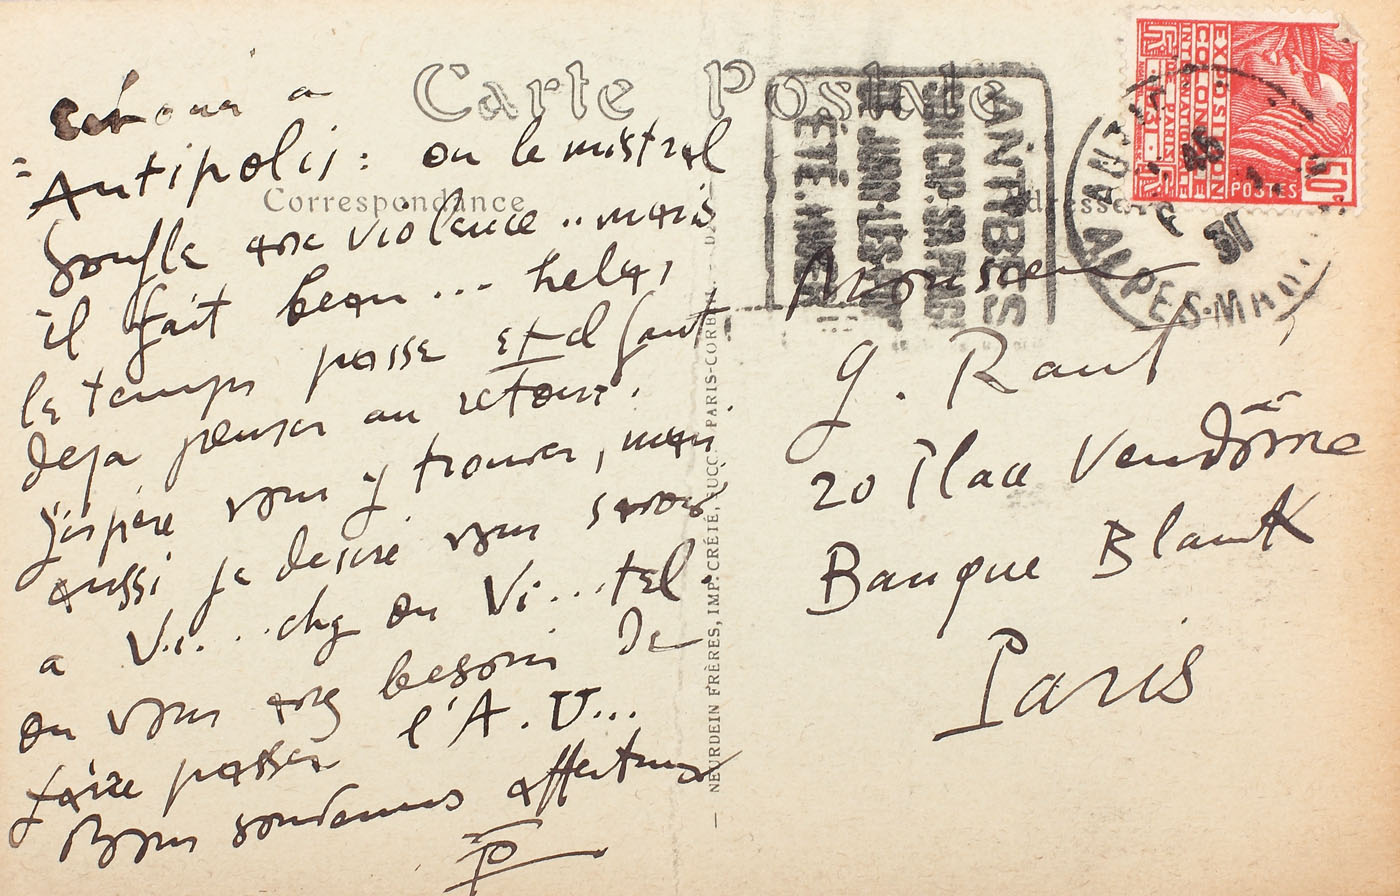 Carte Postale
Correspondance
Adresse
à
Antipolis : ou le mistral
souffle avec violence .. mais
il fait beau ... helas
le temps passe et il faut
deja penser au retour.
J'espère vous y trouver, mais
aussi je desire vous savoir
a Vi.....chy ou Vi...tel.
ou vous avez besoin de
faire passer l'A.U...
Bons souvenirs affectueux
Monsieur
G. Raut
20 Place Vendôme
Banque Blanck
Paris
NEURDEIN FRÈRES, IMP. CRÉTÉ, SUCC. PARIS-CORBEIL
ANTIBES
ÉTÉ. HIVER
ALPES-MAR
31
EXPOSITION
COLONIALE
INTERNATIONALE
DE PARIS
1931
POSTES
50c